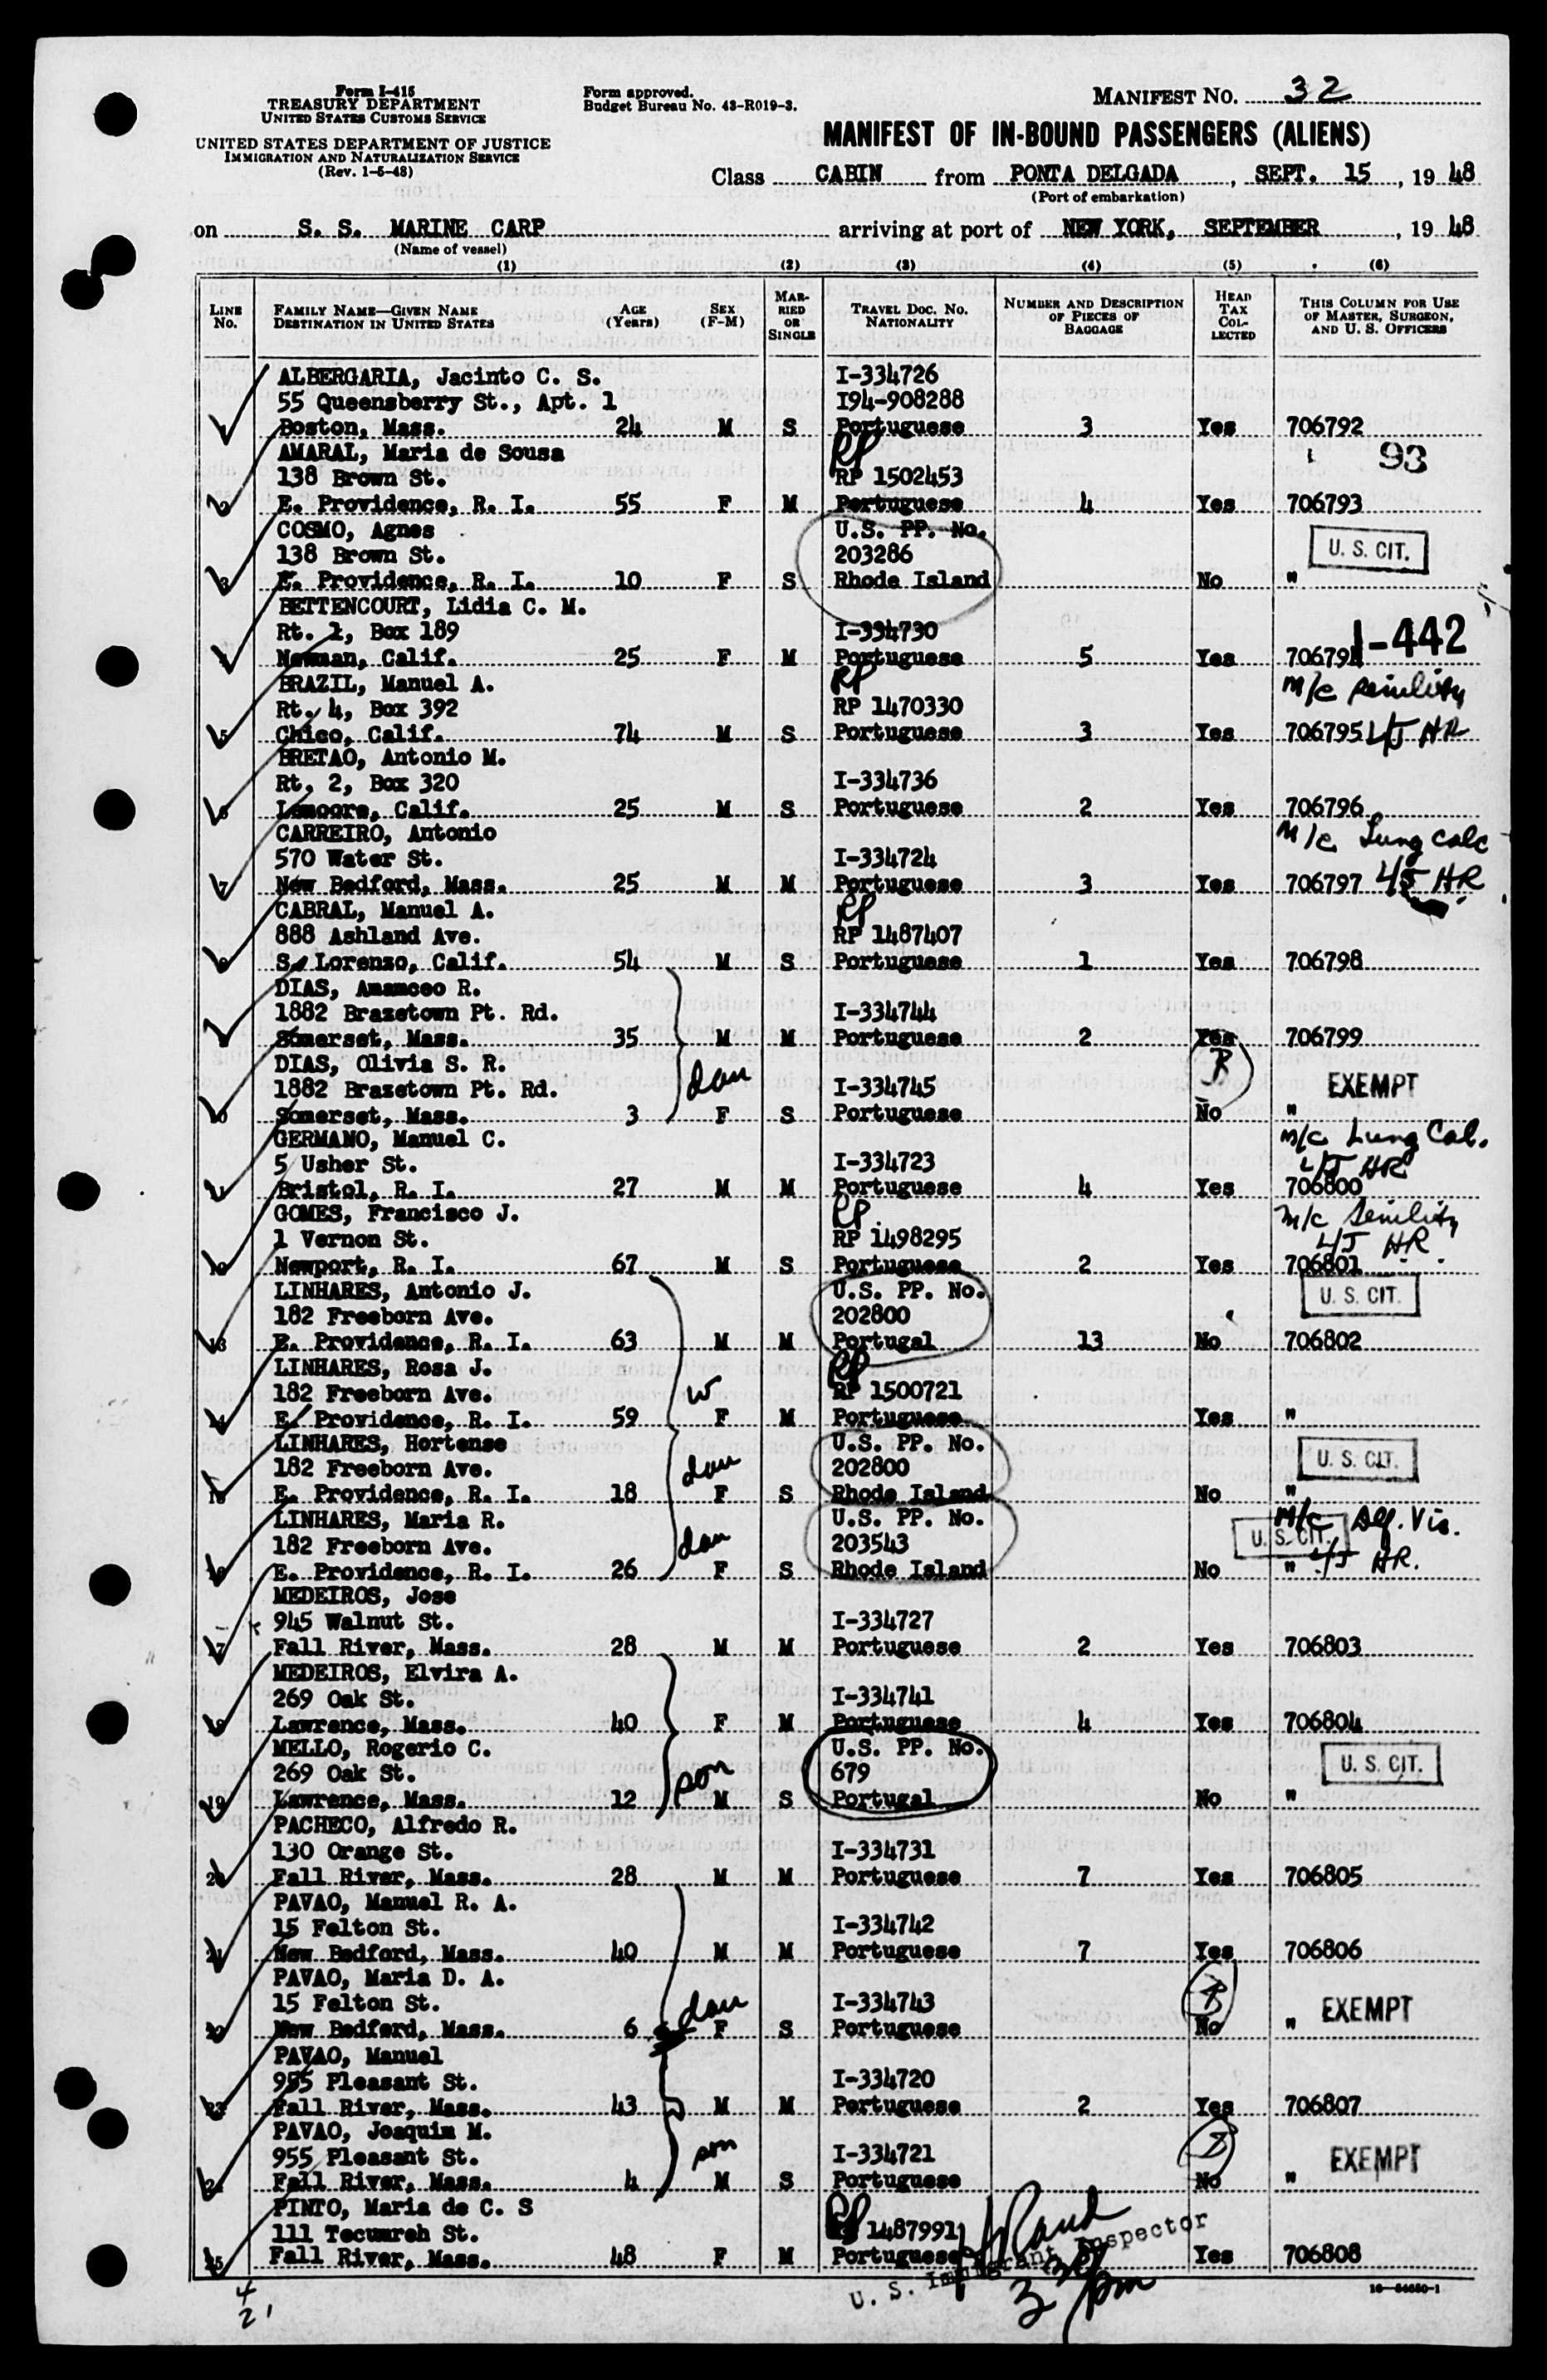 Form I-415
TREASURY DEPARTMENT
UNITED STATES CUSTOMS SERVICE
UNITED STATES DEPARTMENT OF JUSTICE
IMMIGRATION AND NATURALIZATION SERVICE
(Rev. 1-5-48)
Form approved.
Budget Bureau No. 43-R019-3.
MANIFEST NO. 32
MANIFEST OF IN-BOUND PASSENGERS (ALIENS)
Class CABIN from PONTA DELGADA, SEPT. 15, 19 48
(Port of embarkation)
on S. S. MARINE CARP arriving at port of NEW YORK, SEPTEMBER, 19 48
(Name of vessel)
(1) (2) (3) (4) (5) (6)
LINE No. FAMILY NAME—GIVEN NAME DESTINATION IN UNITED STATES AGE (Years) SEX (F-M) MARRIED OR SINGLE TRAVEL DOC. NO. NATIONALITY NUMBER AND DESCRIPTION OF PIECES OF BAGGAGE HEAD TAX COLLECTED THIS COLUMN FOR USE OF MASTER, SURGEON, AND U. S. OFFICERS
ALBERGARIA, Jacinto C. S. I-334726
55 Queensberry St., Apt. 1 I94-908288
1 Boston, Mass. 24 M S Portuguese 3 Yes 706792
AMARAL, Maria de Sousa RP 93
138 Brown St. RP 1502453
2 E. Providence, R. I. 55 F M Portuguese 4 Yes 706793
COSMO, Agnes U.S. PP. No.
138 Brown St. 203286 U. S. CIT.
3 E. Providence, R. I. 10 F S Rhode Island No "
BETTENCOURT, Lidia C. M.
Rt. 1, Box 189 I-334730 1-442
4 Newman, Calif. 25 F M Portuguese 5 Yes 706794
BRAZIL, Manuel A. RP m/c senility
Rt. 4, Box 392 RP 1470330
5 Chico, Calif. 74 M S Portuguese 3 Yes 706795 LJ HR
BRETAO, Antonio M.
Rt. 2, Box 320 I-334736
6 Lemoore, Calif. 25 M S Portuguese 2 Yes 706796
CARREIRO, Antonio m/c Lung calc
570 Water St. I-334724
7 New Bedford, Mass. 25 M M Portuguese 3 Yes 706797 LJ HR
CABRAL, Manuel A. RP
888 Ashland Ave. RP 1487407
8 S. Lorenzo, Calif. 54 M S Portuguese 1 Yes 706798
DIAS, Amamceo R.
1882 Brazetown Pt. Rd. I-334744
9 Somerset, Mass. 35 M M Portuguese 2 Yes 706799
DIAS, Olivia S. R.
1882 Brazetown Pt. Rd. dau I-334745 EXEMPT
10 Somerset, Mass. 3 F S Portuguese No "
GERMANO, Manuel C. m/c Lung Cal.
5 Usher St. I-334723 LJ HR
11 Bristol, R. I. 27 M M Portuguese 4 Yes 706800
GOMES, Francisco J. RP m/c Senility
1 Vernon St. RP 1498295 LJ HR
12 Newport, R. I. 67 M S Portuguese 2 Yes 706801
LINHARES, Antonio J. U.S. PP. No. U. S. CIT.
182 Freeborn Ave. 202800
13 E. Providence, R. I. 63 M M Portugal 13 No 706802
LINHARES, Rosa J. RP
182 Freeborn Ave. w RP 1500721
14 E. Providence, R. I. 59 F M Portuguese Yes "
LINHARES, Hortense U.S. PP. No.
182 Freeborn Ave. dau 202800 U. S. CIT.
15 E. Providence, R. I. 18 F S Rhode Island No "
LINHARES, Maria R. U.S. PP. No. m/c Def. Vis.
182 Freeborn Ave. dau 203543 U. S. CIT.
16 E. Providence, R. I. 26 F S Rhode Island No " LJ HR.
MEDEIROS, Jose
945 Walnut St. I-334727
17 Fall River, Mass. 28 M M Portuguese 2 Yes 706803
MEDEIROS, Elvira A.
269 Oak St. I-334741
18 Lawrence, Mass. 40 F M Portuguese 4 Yes 706804
MELLO, Rogerio C. U.S. PP. No.
269 Oak St. son 679 U. S. CIT.
19 Lawrence, Mass. 12 M S Portugal No "
PACHECO, Alfredo R.
130 Orange St. I-334731
20 Fall River, Mass. 28 M M Portuguese 7 Yes 706805
PAVAO, Manuel R. A.
15 Felton St. I-334742
21 New Bedford, Mass. 40 M M Portuguese 7 Yes 706806
PAVAO, Maria D. A.
15 Felton St. dau I-334743 EXEMPT
22 New Bedford, Mass. 6 F S Portuguese No "
PAVAO, Manuel
955 Pleasant St. I-334720
23 Fall River, Mass. 43 M M Portuguese 2 Yes 706807
PAVAO, Joaquim M.
955 Pleasant St. son I-334721 EXEMPT
24 Fall River, Mass. 4 M S Portuguese No "
PINTO, Maria de C. S
111 Tecumreh St. RP 1487991
25 Fall River, Mass. 48 F M Portuguese Yes 706808
U. S. Immigrant Inspector
4
21
16—54650-1